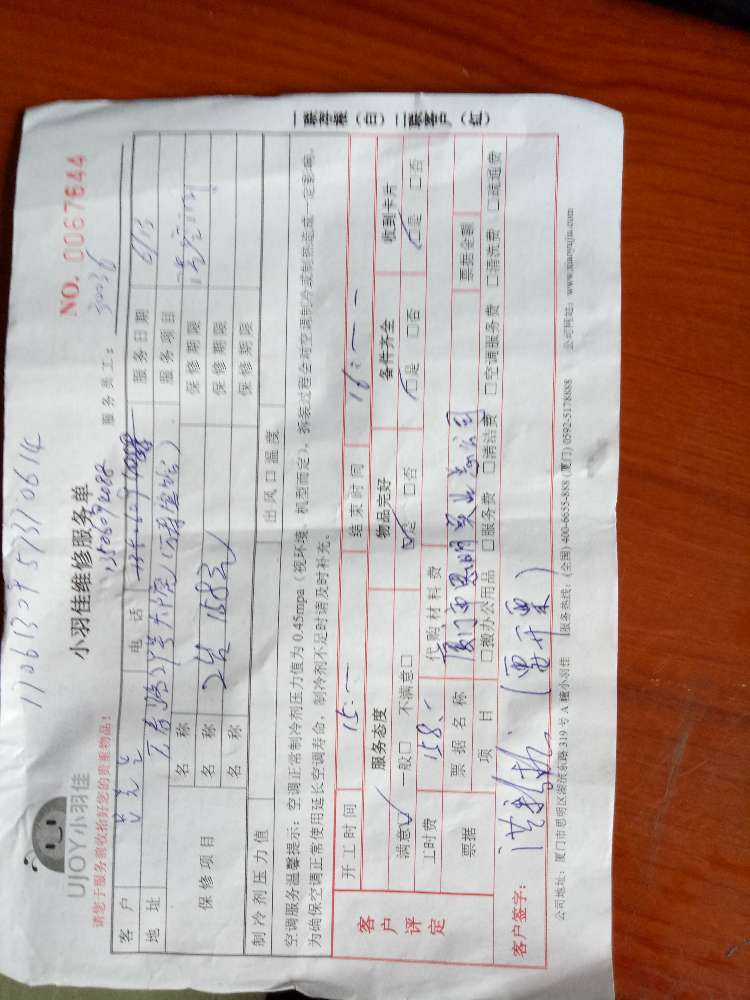 一联存根（白）二联客户（红）
UJOY小羽佳
小羽佳维修服务单
NO. 0067644
请您于服务前收拾好您的贵重物品！
服务员工：
客户 电话 服务日期 6/13
地址 服务项目
保修项目 名称 2台 158元 保修期限
名称 保修期限
名称 保修期限
制冷剂压力值 出风口温度
空调服务温馨提示：空调正常制冷剂压力值为 0.45mpa（视环境、机型而定），拆装过程会对空调制冷或制热造成一定影响，
为确保空调正常使用延长空调寿命，制冷剂不足时请及时补充。
客户评定 开工时间 15:— 结束时间 16:—
服务态度 物品完好 备件齐全 收到卡片
满意□ 一般□ 不满意□ □是 □否 □是 □否 □是 □否
工时费 158 代购材料费
票据 票据名称 厦门市思明 票据金额
项目 □搬办公用品 □服务费 □清洁费 □空调服务费 □清洗费 □疏通费
客户签字： （需开票）
公司地址：厦门市思明区湖滨东路 319 号 A 幢小羽佳 服务热线：(全国) 400-6655-888 (厦门) 0592-5178888 公司网站：www.xiaoyujia.com